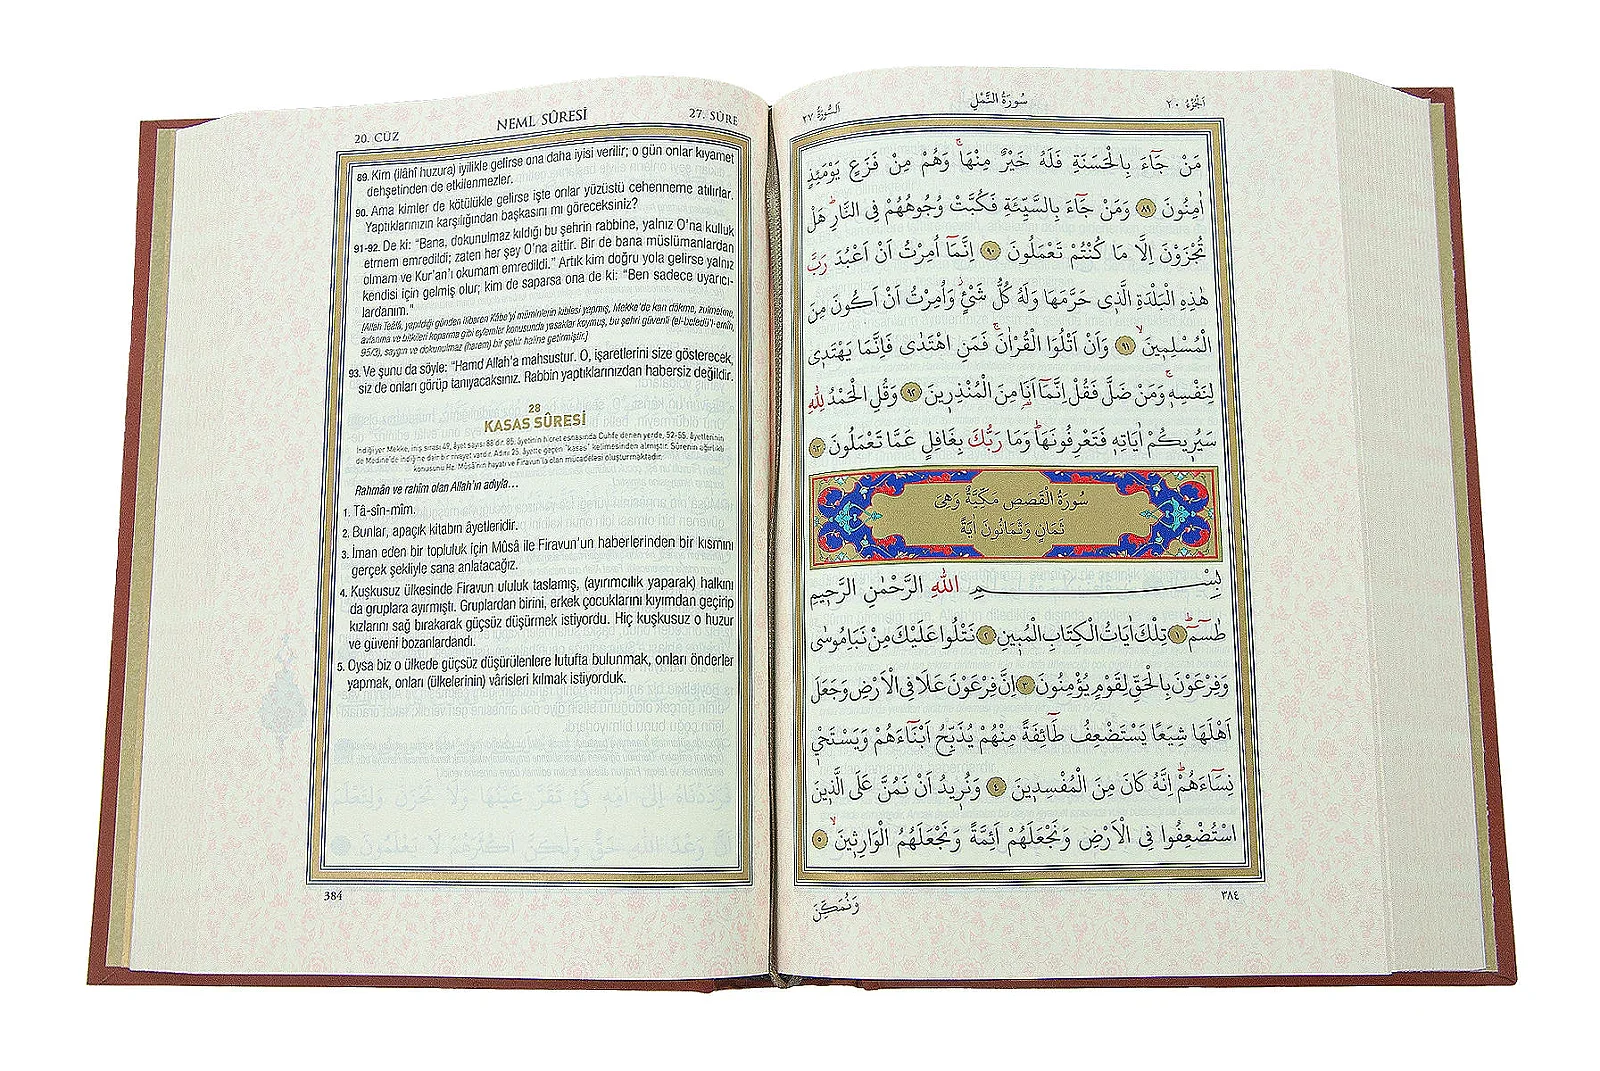 20. CÜZ
NEML SÛRESİ
27. SÛRE
89. Kim (ilâhî huzura) iyilikle gelirse ona daha iyisi verilir; o gün onlar kıyamet
dehşetinden de etkilenmezler.
90. Ama kimler de kötülükle gelirse işte onlar yüzüstü cehenneme atılırlar.
Yaptıklarınızın karşılığından başkasını mı göreceksiniz?
91-92. De ki: “Bana, dokunulmaz kıldığı bu şehrin rabbine, yalnız O’na kulluk
etmem emredildi; zaten her şey O’na aittir. Bir de bana müslümanlardan
olmam ve Kur’an’ı okumam emredildi.” Artık kim doğru yola gelirse yalnız
kendisi için gelmiş olur; kim de saparsa ona de ki: “Ben sadece uyarıcı-
lardanım.”
[Allah Teâlâ, yapıldığı günden itibaren Kâbe’yi müminlerin kıblesi yapmış, Mekke’de kan dökme, zulmetme,
avlanma ve bitkileri koparma gibi eylemler konusunda yasaklar koymuş, bu şehri güvenli (el-beledü’l-emîn,
95/3), saygın ve dokunulmaz (harem) bir şehir haline getirmiştir.]
93. Ve şunu da söyle: “Hamd Allah’a mahsustur. O, işaretlerini size gösterecek,
siz de onları görüp tanıyacaksınız. Rabbin yaptıklarınızdan habersiz değildir.
28
KASAS SÛRESİ
İndiği yer Mekke, iniş sırası 49, âyet sayısı 88’dir. 85. âyetinin hicret esnasında Cuhfe denen yerde, 52-55. âyetlerinin
de Medine’de indiğine dair bir rivayet vardır. Adını 25. âyette geçen “kasas” kelimesinden almıştır. Sûrenin ağırlıklı
konusunu Hz. Mûsâ’nın hayatı ve Firavun’la olan mücadelesi oluşturmaktadır.
Rahmân ve rahîm olan Allah’ın adıyla…
1. Tâ-sîn-mîm.
2. Bunlar, apaçık kitabın âyetleridir.
3. İman eden bir topluluk için Mûsâ ile Firavun’un haberlerinden bir kısmını
gerçek şekliyle sana anlatacağız.
4. Kuşkusuz ülkesinde Firavun ululuk taslamış, (ayırımcılık yaparak) halkını
da gruplara ayırmıştı. Gruplardan birini, erkek çocuklarını kıyımdan geçirip
kızlarını sağ bırakarak güçsüz düşürmek istiyordu. Hiç kuşkusuz o huzur
ve güveni bozanlardandı.
5. Oysa biz o ülkede güçsüz düşürülenlere lutufta bulunmak, onları önderler
yapmak, onları (ülkelerinin) vârisleri kılmak istiyorduk.
384
اَلْجُزْءُ ٢٠
سُورَةُ النَّمْلِ
اَلسُّورَةُ ٢٧
مَنْ جَٓاءَ بِالْحَسَنَةِ فَلَهُ خَيْرٌ مِنْهَاۚ وَهُمْ مِنْ فَزَعٍ يَوْمَئِذٍ
اٰمِنُونَ ﴿٨٩﴾ وَمَنْ جَٓاءَ بِالسَّيِّئَةِ فَكُبَّتْ وُجُوهُهُمْ فِي النَّارِۜ هَلْ
تُجْزَوْنَ اِلَّا مَا كُنْتُمْ تَعْمَلُونَ ﴿٩٠﴾ اِنَّمَٓا اُمِرْتُ اَنْ اَعْبُدَ رَبَّ
هٰذِهِ الْبَلْدَةِ الَّذ۪ي حَرَّمَهَا وَلَهُ كُلُّ شَيْءٍۘ وَاُمِرْتُ اَنْ اَكُونَ مِنَ
الْمُسْلِم۪ينَۙ ﴿٩١﴾ وَاَنْ اَتْلُوَا الْقُرْاٰنَۚ فَمَنِ اهْتَدٰى فَاِنَّمَا يَهْتَد۪ي
لِنَفْسِه۪ۚ وَمَنْ ضَلَّ فَقُلْ اِنَّمَٓا اَنَا۬ مِنَ الْمُنْذِر۪ينَ ﴿٩٢﴾ وَقُلِ الْحَمْدُ لِلّٰهِ
سَيُر۪يكُمْ اٰيَاتِه۪ فَتَعْرِفُونَهَاۜ وَمَا رَبُّكَ بِغَافِلٍ عَمَّا تَعْمَلُونَ ﴿٩٣﴾
سُورَةُ الْقَصَصِ مَكِّيَّةٌ وَهِيَ
ثَمَانٍ وَثَمَانُونَ اٰيَةً
بِسْمِ اللّٰهِ الرَّحْمٰنِ الرَّح۪يمِ
طٰسٓمٓۜ ﴿١﴾ تِلْكَ اٰيَاتُ الْكِتَابِ الْمُب۪ينِ ﴿٢﴾ نَتْلُوا عَلَيْكَ مِنْ نَبَاِ مُوسٰى
وَفِرْعَوْنَ بِالْحَقِّ لِقَوْمٍ يُؤْمِنُونَ ﴿٣﴾ اِنَّ فِرْعَوْنَ عَلَا فِي الْاَرْضِ وَجَعَلَ
اَهْلَهَا شِيَعًا يَسْتَضْعِفُ طَٓائِفَةً مِنْهُمْ يُذَبِّحُ اَبْنَٓاءَهُمْ وَيَسْتَحْي۪
نِسَٓاءَهُمْۜ اِنَّهُ كَانَ مِنَ الْمُفْسِد۪ينَ ﴿٤﴾ وَنُر۪يدُ اَنْ نَمُنَّ عَلَى الَّذ۪ينَ
اسْتُضْعِفُوا فِي الْاَرْضِ وَنَجْعَلَهُمْ اَئِمَّةً وَنَجْعَلَهُمُ الْوَارِث۪ينَۙ ﴿٥﴾
وَنُمَكِّنَ
٣٨٤